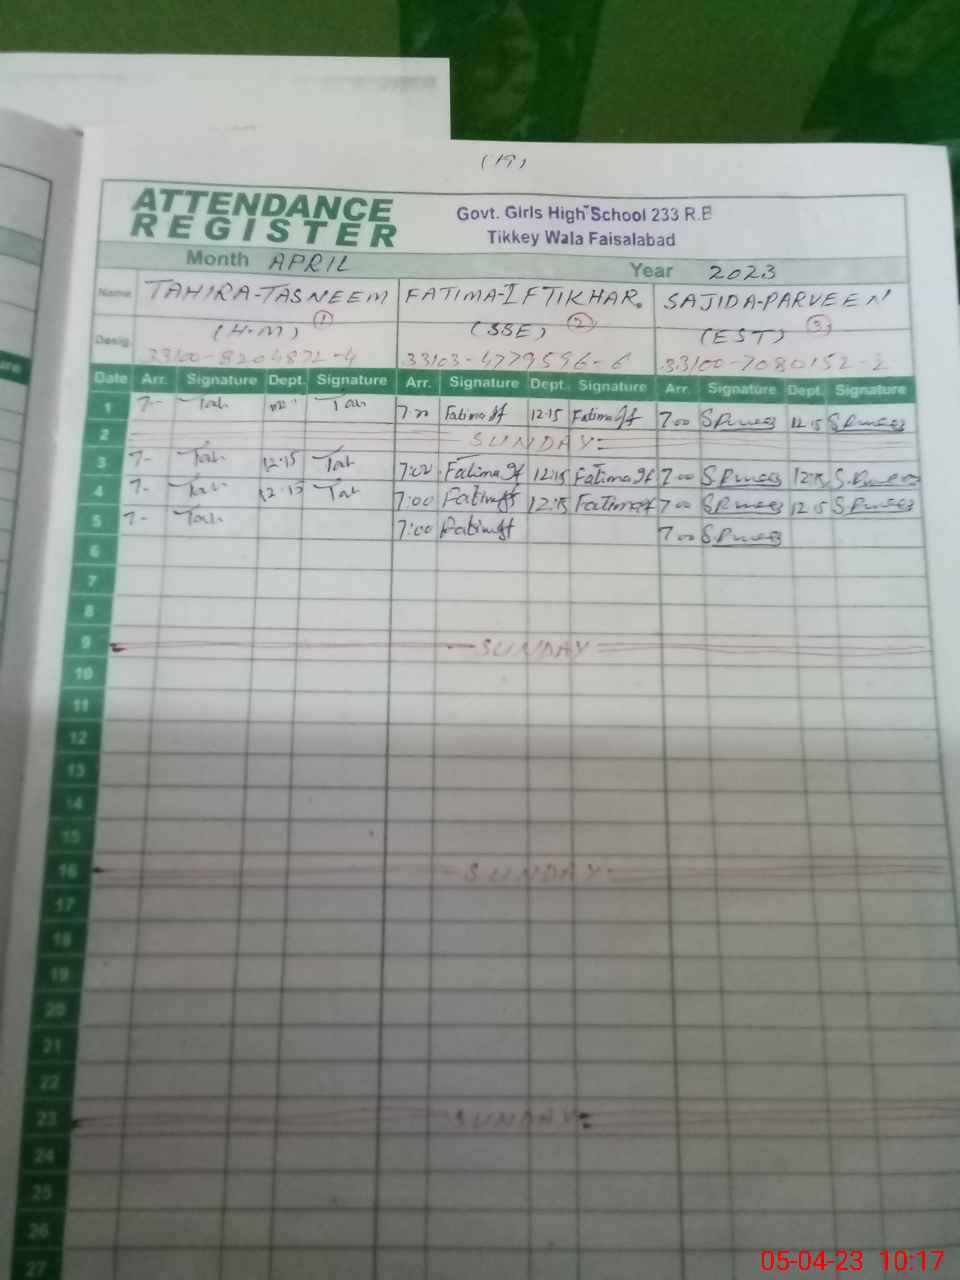 (19)
ATTENDANCE REGISTER
Govt. Girls High School 233 R.B
Tikkey Wala Faisalabad
Month APRIL Year 2023
Name TAHIRA-TASNEEM FATIMA-IFTIKHAR. SAJIDA-PARVEEN
Desig. (H.M) 1 (SSE) 2 (EST) 3
33100-8204872-4 33103-4779596-6 33100-7080152-2
Date Arr. Signature Dept. Signature Arr. Signature Dept. Signature Arr. Signature Dept. Signature
1 7- Tah Tah 7:00 Fatima If 12:15 Fatima If 7:00 12:15
2 SUNDAY
3 7- Tah 12:15 Tah 7:00 Fatima If 12:15 Fatima If 7:00 12:15
4 7- Tah 12:15 Tah 7:00 Fatima If 12:15 Fatima If 7:00 12:15
5 7- Tah 7:00 Fatima If 7:00
6
7
8
9 SUNDAY
10
11
12
13
14
15
16 SUNDAY
17
18
19
20
21
22
23 SUNDAY
24
25
26
27
05-04-23 10:17